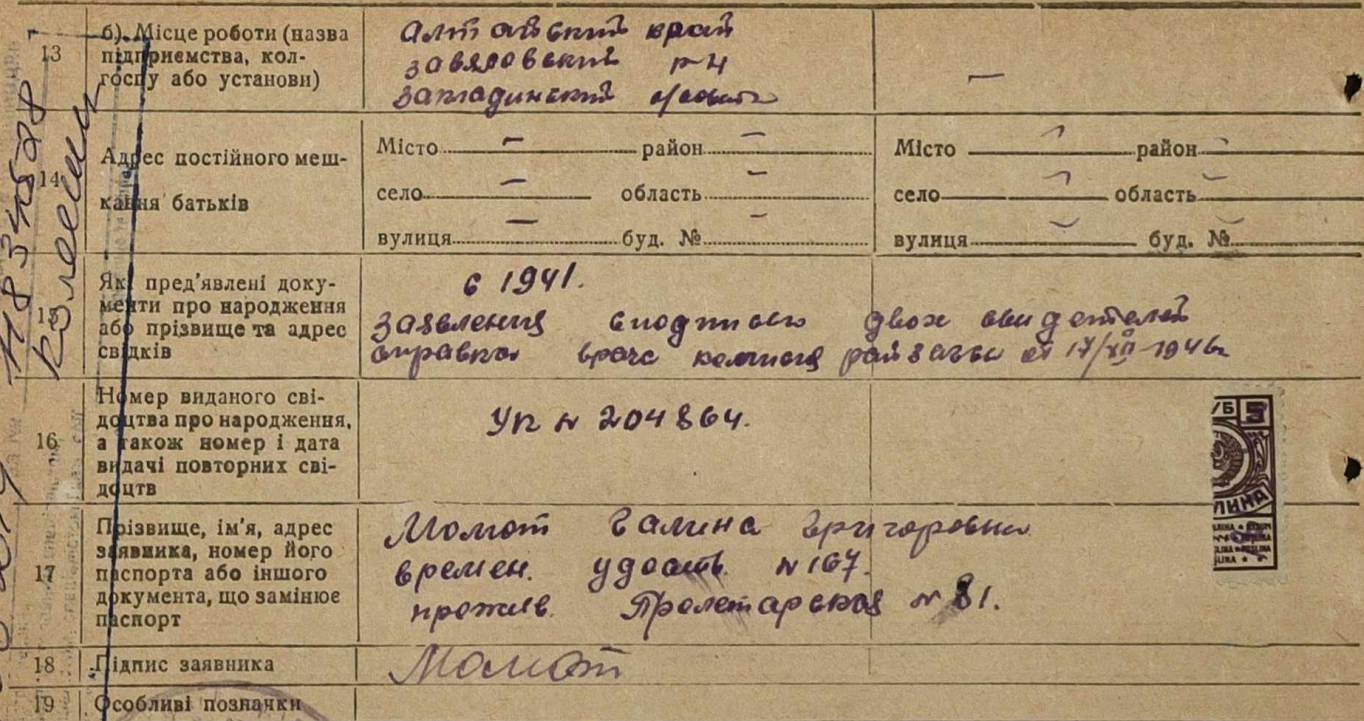 13 б). Місце роботи (назва підприємства, колгоспу або установи)
Алтайский край
Завяловский р-н
14 Адрес постійного мешкання батьків
Місто — район — Місто — район —
село — область — село — область —
вулиця — буд. № — вулиця — буд. № —
15 Які пред'явлені документи про народження або прізвище та адрес свідків
с 1941.
Заявления с подписью двох свидетелей
справка врача от 17/XII-1946г
16 Номер виданого свідоцтва про народження, а також номер і дата видачі повторних свідоцтв
УП № 204864.
17 Прізвище, ім'я, адрес заявника, номер його паспорта або іншого документа, що замінює паспорт
Момот Галина Григоровна
времен. удост. № 167.
прожив. Пролетарская № 81.
18 Підпис заявника
Момот
19 Особливі позначки